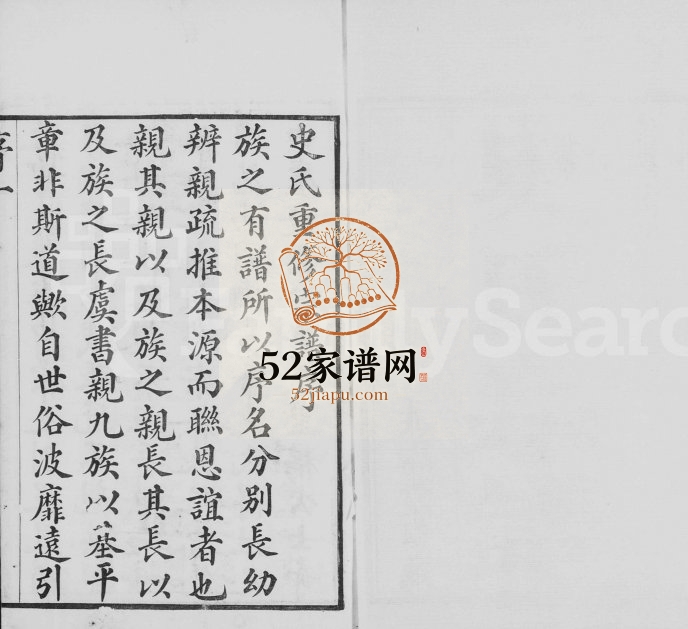 史氏重修宗譜序
族之有譜所以序名分別長幼
辨親疏推本源而聯恩誼者也
親其親以及族之親長其長以
及族之長虞書親九族以基平
章非斯道歟自世俗波靡遠引
序一
52家谱网
52jiapu.com
FamilySearch